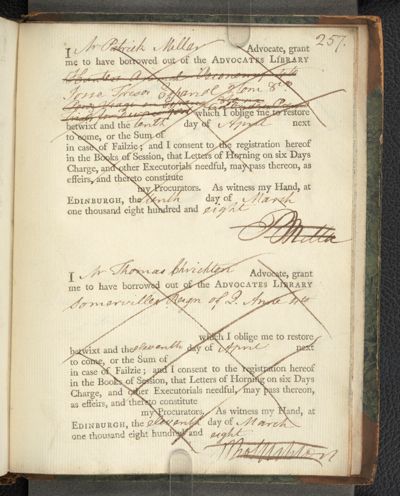 257.
I Mr Patrick Millar Advocate, grant
me to have borrowed out of the ADVOCATES LIBRARY
8vo
which I oblige me to restore
betwixt and the tenth day of April next
to come, or the Sum of
in case of Failzie; and I consent to the registration hereof
in the Books of Session, that Letters of Horning on six Days
Charge, and other Executorials needful, may pass thereon, as
effeirs, and thereto constitute
my Procurators. As witness my Hand, at
EDINBURGH, the tenth day of March
one thousand eight hundred and eight
P Millar
I Mr Thomas Chrichton Advocate, grant
me to have borrowed out of the ADVOCATES LIBRARY
Somervilles Reign of Q. Anne 4to
which I oblige me to restore
betwixt and the eleventh day of April next
to come, or the Sum of
in case of Failzie; and I consent to the registration hereof
in the Books of Session, that Letters of Horning on six Days
Charge, and other Executorials needful, may pass thereon,
as effeirs, and thereto constitute
my Procurators. As witness my Hand, at
EDINBURGH, the eleventh day of March
one thousand eight hundred and eight